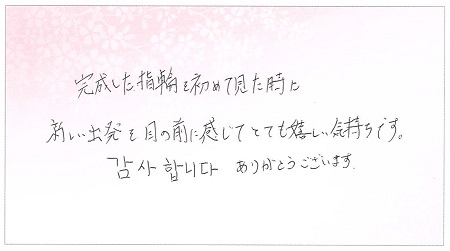 完成した指輪を初めて見た時に
新しい出発を目の前に感じてとても嬉しい気持ちです。
감사합니다 ありがとうございます.